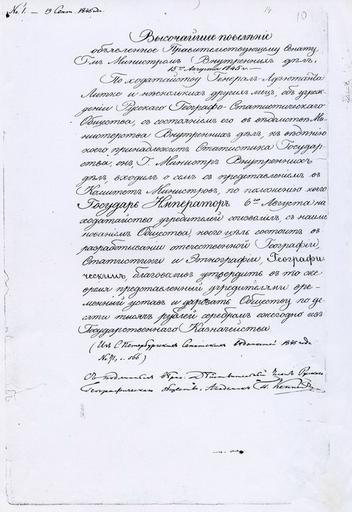 № 1. — 19 Сент. 1845 года
10
Высочайшія повелѣнія
объявленное Правительствующему Сенату
Г-мъ Министромъ Внутреннихъ дѣлъ.
15го Августа 1845 г.
По ходатайству Генералъ Адъютанта
Литке и нѣсколькихъ другихъ лицъ, объ учреж-
деніи Русскаго Географо-Статистическаго
Общества, съ состояніемъ его въ вѣдомствѣ Ми-
нистерства Внутреннихъ дѣлъ, къ вѣдѣнію
коего принадлежитъ Статистика Государ-
ства, онъ, Г. Министръ Внутреннихъ
дѣлъ, входилъ о семъ съ представленіемъ въ
Комитетъ Министровъ, по положенію коего
Государь Императоръ 6го Августа на
ходатайство учредителей соизволилъ, съ наиме-
нованіемъ Общества, коего цѣль состоитъ въ
разработываніи отечественной Географіи,
Статистики и Этнографіи, Географи-
ческимъ, благоволивъ утвердить въ то же
время представленный учредителями вре-
менный уставъ и даровать Обществу по де-
сяти тысячъ рублей серебромъ ежегодно изъ
Государственнаго Казначейства.
(Изъ С. Петербургскихъ Сенатскихъ Вѣдомостей 1845 года
№ 71, с. 366)
Съ подлиннымъ вѣрно: Дѣйствительный Членъ Русскаго
Географическаго Общества, Академикъ П. Кеппенъ